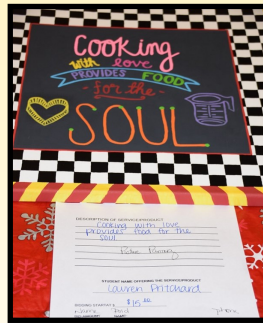 Cooking
with love
PROVIDES FOOD
- for the -
SOUL
DESCRIPTION OF SERVICE/PRODUCT
Cooking with love
provides food for the
soul
STUDENT NAME OFFERING THE SERVICE/PRODUCT
Lauren Pritchard
$15.00